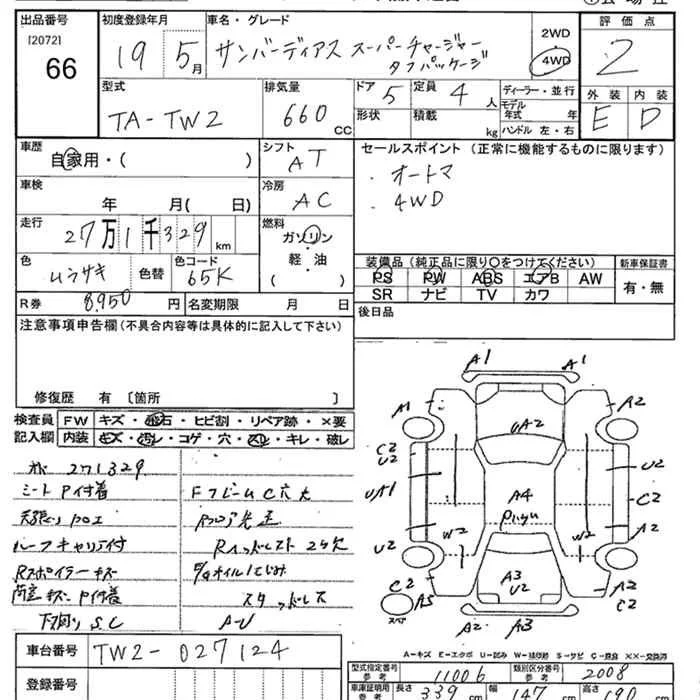 出品番号 初度登録年月 車名・グレード 評価点
[2072] 66 19年 5月 サンバーディアス スーパーチャージャー 2WD 2
タフパッケージ 4WD
型式 排気量 ドア 5 定員 4人 ディーラー・並行 外装 内装
TA-TW2 660cc 形状 積載 kg モデル年式 年 E D
ハンドル 左・右
車歴 シフト セールスポイント(正常に機能するものに限ります)
自家用・( ) AT ・オートマ
車検 冷房 ・4WD
年 月( 日) AC
走行 燃料
27万1千329km ガソリン
軽・油
( )
色 色替 色コード 装備品(純正品に限り〇をつけてください) 新車保証書
ムラサキ 65K PS PW ABS エアB AW 有・無
R券 8,950円 名変期限 月 日 SR ナビ TV カワ
注意事項申告欄(不具合内容等は具体的に記入して下さい) 後日品
修復歴 有 [箇所 ]
検査員 FW キズ・飛石・ヒビ割・リペア跡・×要
記入欄 内装 キズ・汚レ・コゲ・穴・スレ・キレ・破レ
271329
シートP付着 FフレームC穴大
天張り
ルーフキャリア付
Rスポイラーキズ
スタッドレス
下廻りS.C A-U
A1 A1
A1 A2
UA2
C2 U2 U2
UA1 A4 C2
W2 W2 A2
U2
A3 U2
C2 A2 C2
A5
スペア
A2 A3
A-キズ E-エクボ U-凹み W-補修跡 S-サビ C-腐食 ××-交換済
車台番号 TW2-027124
型式指定番号 参考 11006 類別区分番号 参考 2008
登録番号 車庫証明用 参考 長さ 339cm 幅 147cm 高さ 190cm